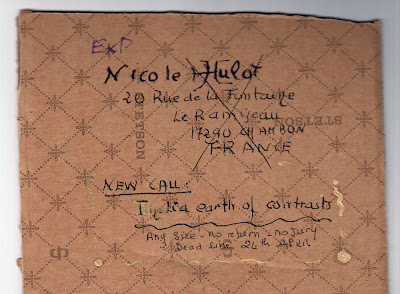 EXP
Nicole Hulot
20 Rue de la Fontaine
Le Ramigeau
17290 CHAMBON
FRANCE
STETSON
STETSON
NEW CALL:
earth of contrasts
Any size - no return - no jury
Dead line 24th APRIL